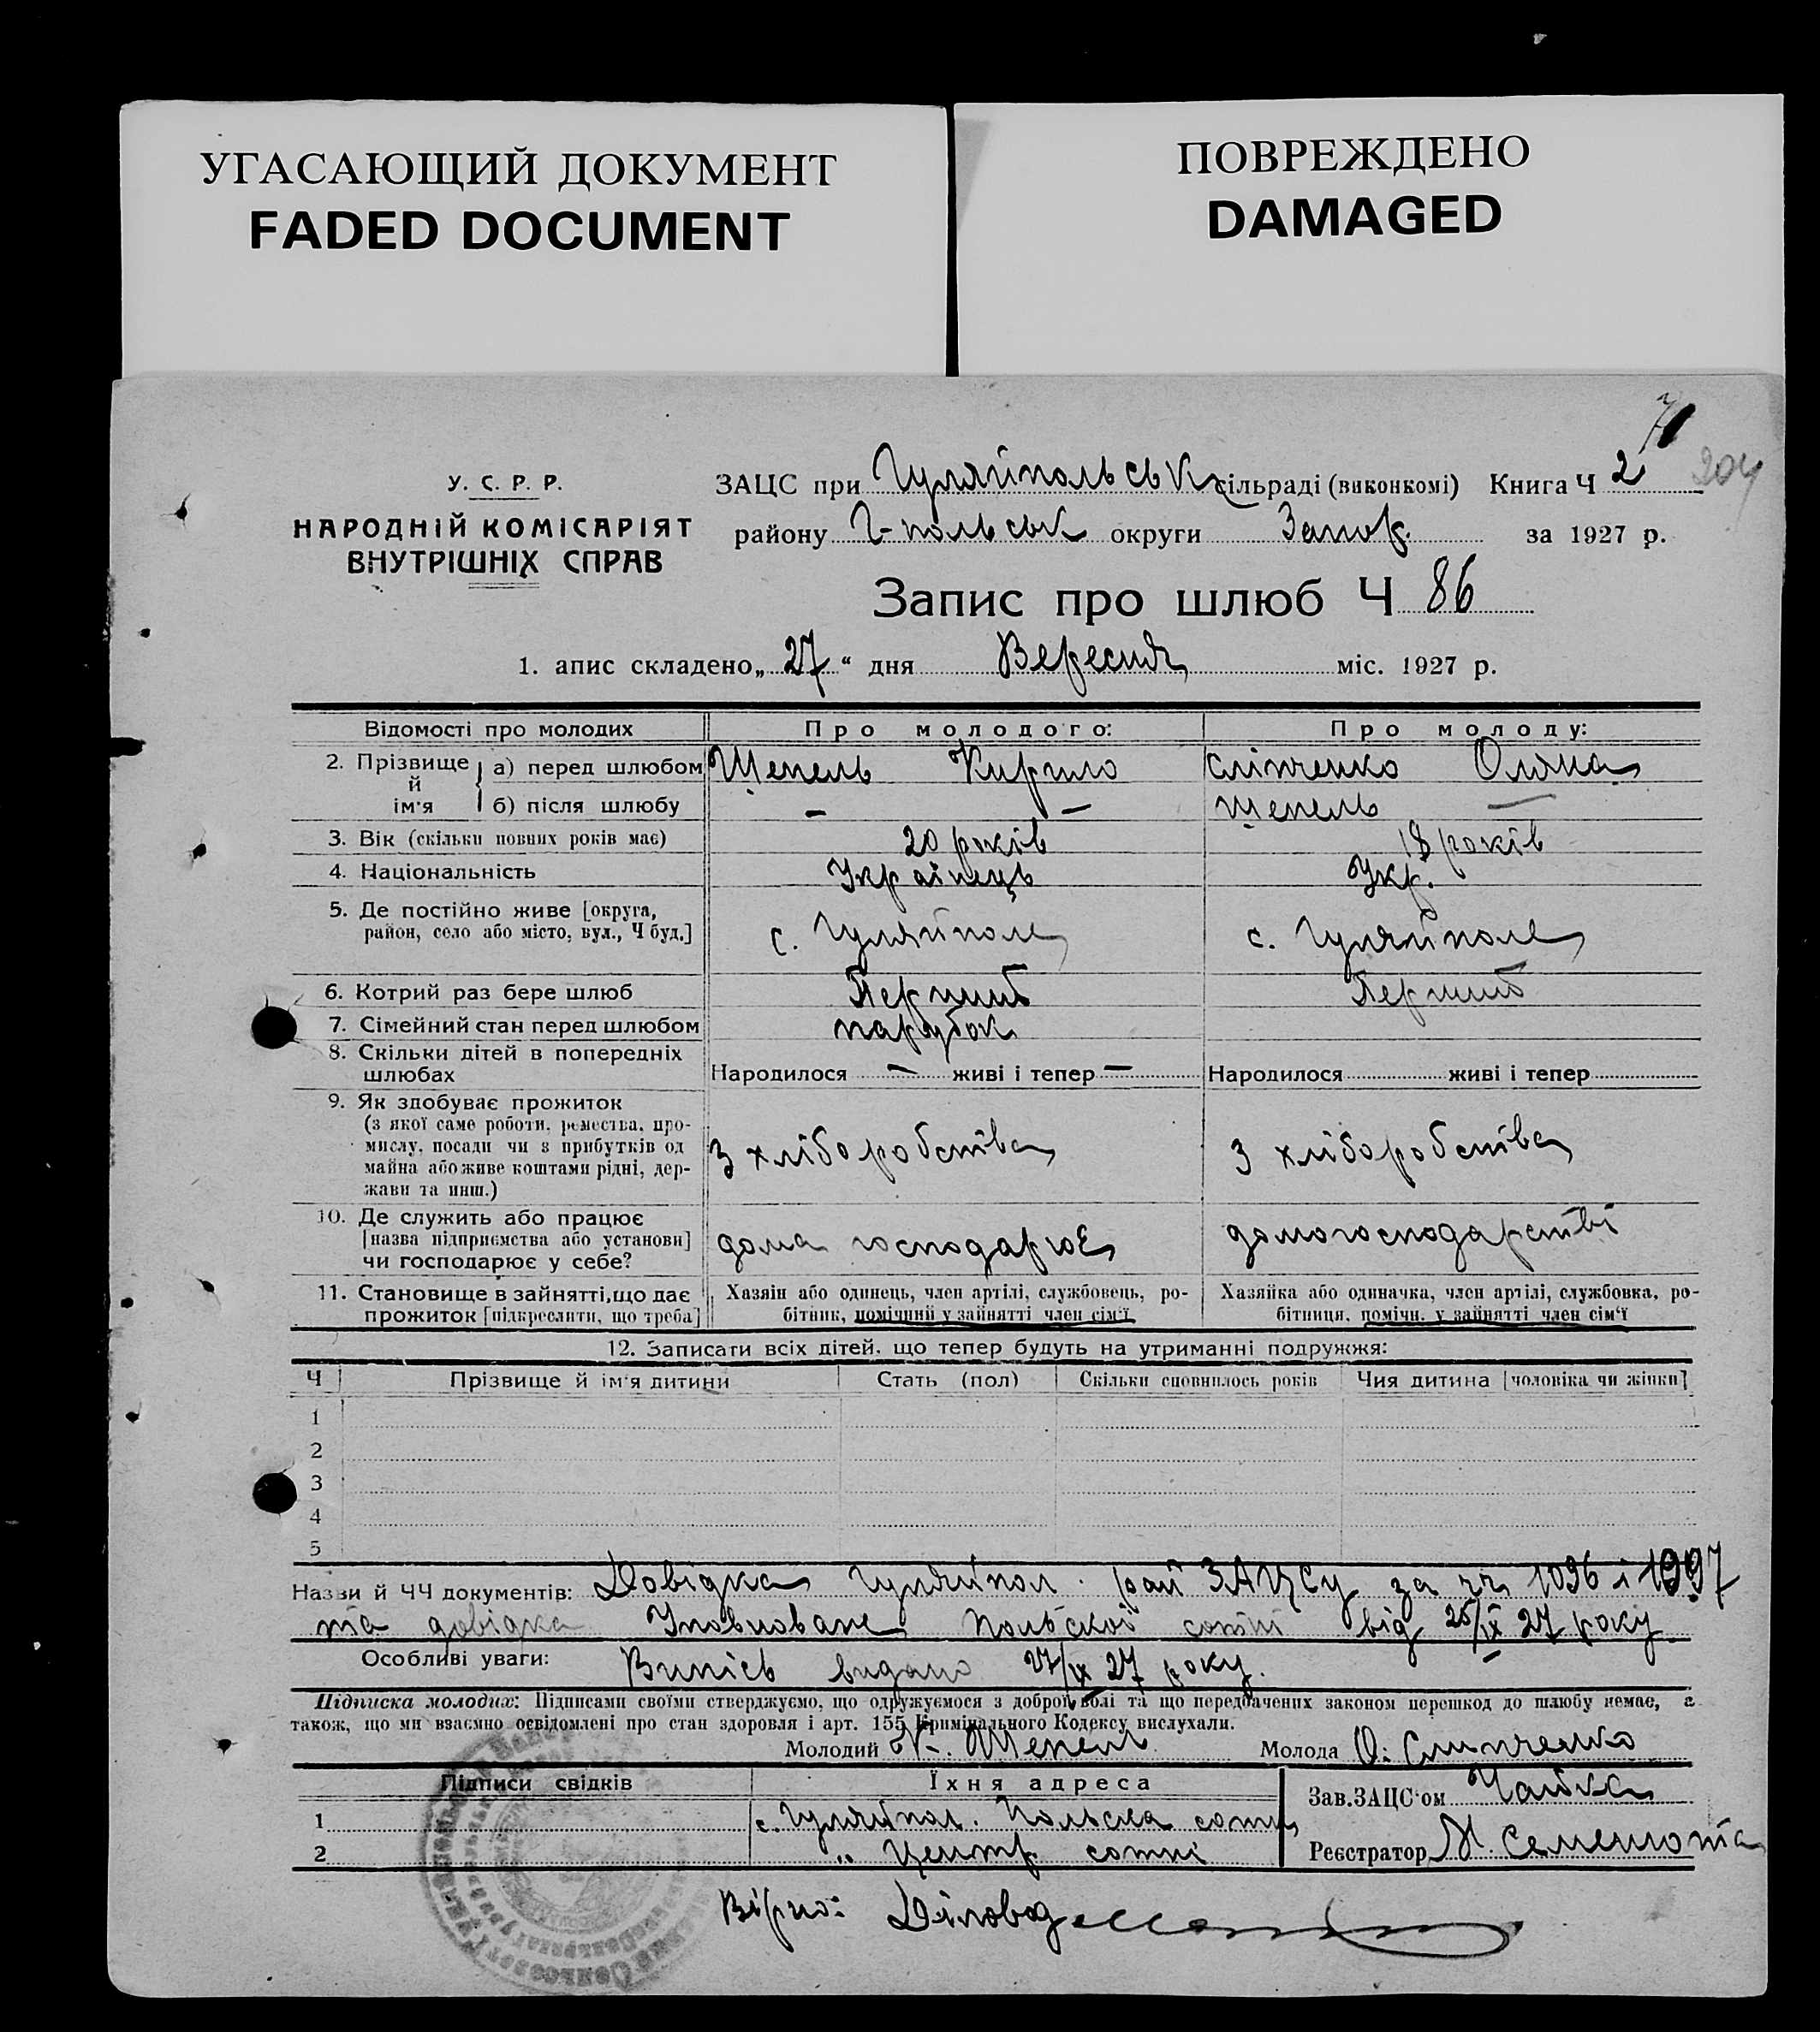 УГАСАЮЩИЙ ДОКУМЕНТ
FADED DOCUMENT
ПОВРЕЖДЕНО
DAMAGED
204
У. С. Р. Р.
НАРОДНІЙ КОМІСАРІЯТ
ВНУТРІШНІХ СПРАВ
ЗАЦС при Гуляйпольськ сільраді (виконкомі) Книга Ч 2
району Г-польськ округи Запор. за 1927 р.
Запис про шлюб Ч 86
1. апис складено „27“ дня Вересня міс. 1927 р.
Відомості про молодих Про молодого: Про молоду:
2. Прізвище й ім'я а) перед шлюбом Щепель Кирило Сліпченко Оляна
б) після шлюбу — — Щепель —
3. Вік (скільки повних років має) 20 років 18 років
4. Національність Українець Укр.
5. Де постійно живе [округа,
район, село або місто, вул., Ч буд.] с. Гуляйполе с. Гуляйполе
6. Котрий раз бере шлюб Перший Перший
7. Сімейний стан перед шлюбом парубок
8. Скільки дітей в попередніх
шлюбах Народилося — живі і тепер — Народилося живі і тепер
9. Як здобуває прожиток
(з якої саме роботи, ремества, про-
мислу, посади чи з прибутків од
майна або живе коштами рідні, дер-
жави та инш.) З хліборобства З хліборобства
10. Де служить або працює
[назва підприємства або установи]
чи господарює у себе? дома господарює домогосподарстві
11. Становище в зайнятті, що дає
прожиток [підкреслити, що треба]
Хазяін або одинець, член артілі, службовець, ро-
бітник, помічний у зайнятті член сім'ї
Хазяйка або одиначка, член артілі, службовка, ро-
бітниця, помічн. у зайнятті член сім'ї
12. Записати всіх дітей, що тепер будуть на утриманні подружжя:
Ч Прізвище й ім'я дитини Стать (пол) Скільки сповнилось років Чия дитина [чоловіка чи жінки]
1
2
3
4
5
Назви й ЧЧ документів: Довідка Гуляйпол. рай ЗАЦСу за чч 1096 і 1097
та довідка Уповноване Польської сотні від 25/IX 27 року
Особливі уваги: Випісь видано 27/IX 27 року.
Підписка молодих: Підписами своїми стверджуємо, що одружуємося з доброї волі та що передбачених законом перешкод до шлюбу немає, а
також, що ми взаємно освідомлені про стан здоровля і арт. 155 Кримінального Кодексу вислухали.
Молодий К. Щепель Молода О. Слипченко
Підписи свідків Їхня адреса Зав.ЗАЦС'ом Чайка
1 с. Гуляйпол. Польска сотн
2 " Центр. сотні Реєстратор Семенюта
Вірно: Діловод